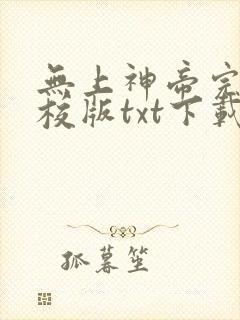 無上神帝完
校版txt下載
孤暮笙